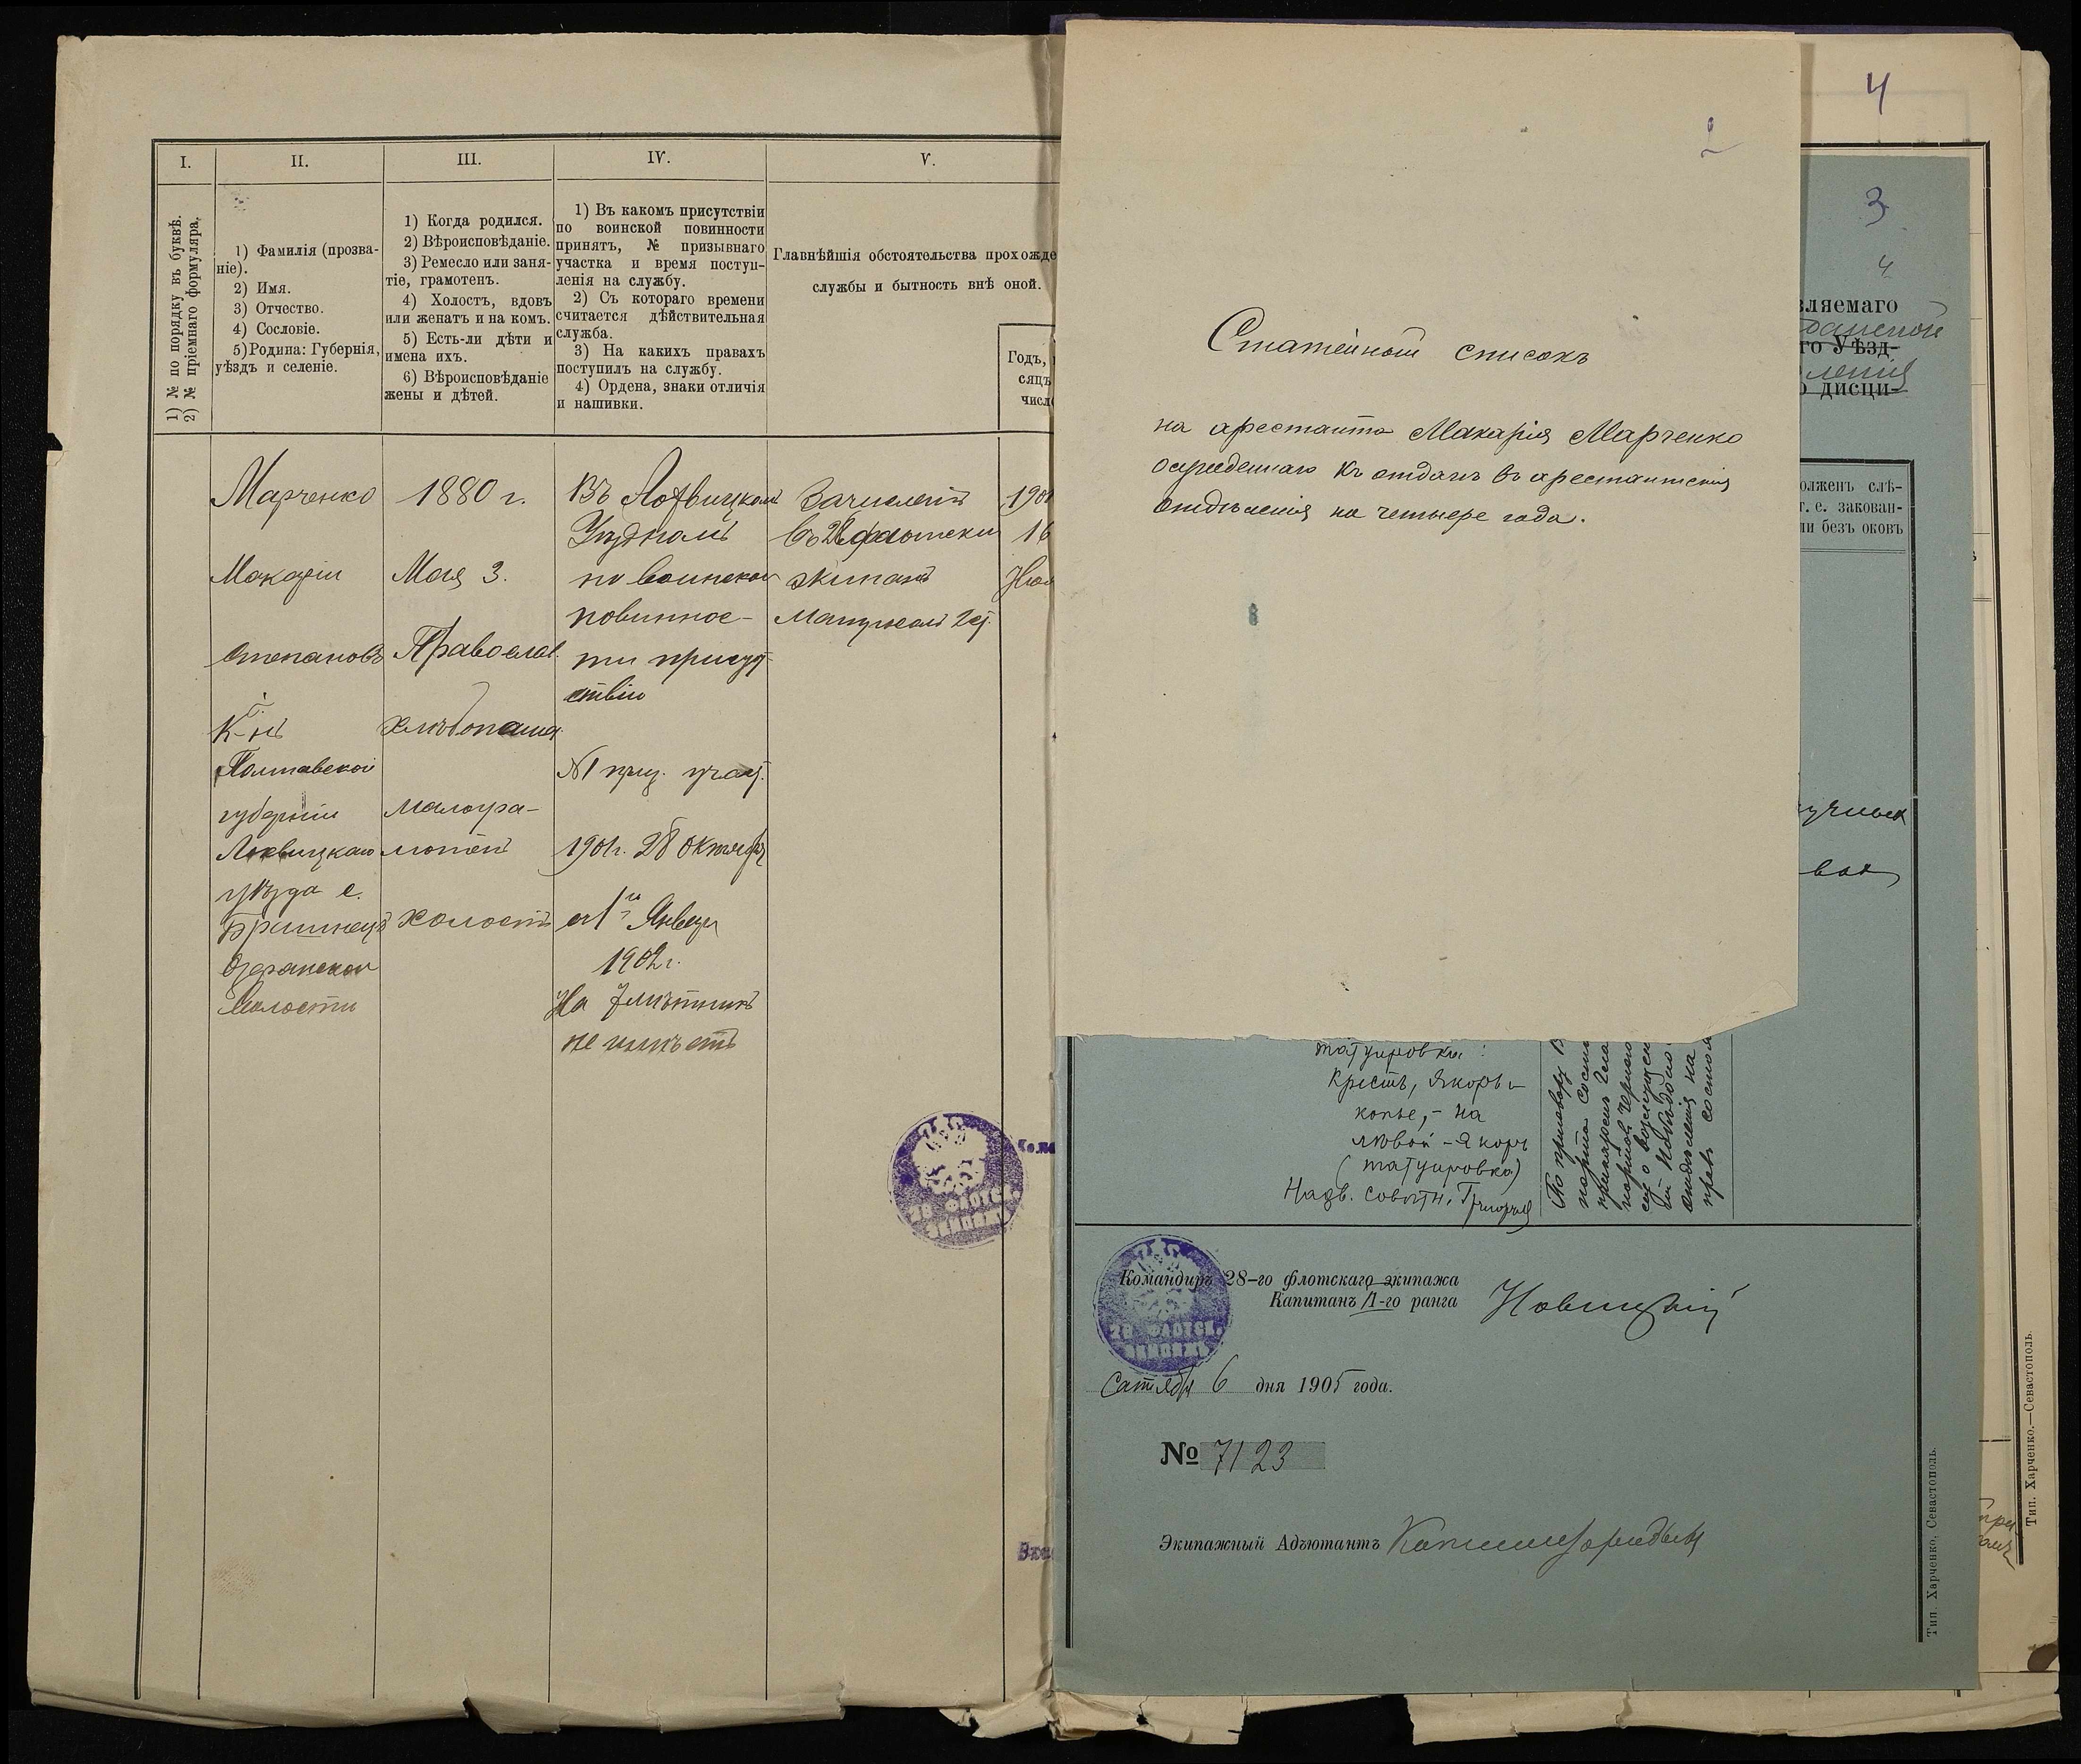 I.
II.
III.
IV.
V.
1) № по порядку въ буквѣ.
2) № пріемнаго формуляра.
1) Фамилія (прозва-
ніе).
2) Имя.
3) Отчество.
4) Сословіе.
5) Родина: Губернія,
уѣздъ и селеніе.
1) Когда родился.
2) Вѣроисповѣданіе.
3) Ремесло или заня-
тіе, грамотенъ.
4) Холостъ, вдовъ
или женатъ и на комъ.
5) Есть-ли дѣти и
имена ихъ.
6) Вѣроисповѣданіе
жены и дѣтей.
1) Въ какомъ присутствіи
по воинской повинности
принятъ, № призывнаго
участка и время поступ-
ленія на службу.
2) Съ котораго времени
считается дѣйствительная
служба.
3) На какихъ правахъ
поступилъ на службу.
4) Ордена, знаки отличія
и нашивки.
Главнѣйшія обстоятельства прохожде
службы и бытность внѣ оной.
Годъ,
сяцъ
число
Марченко
Макарій
Степановъ
К-нъ
Полтавской
губерніи
Лохвицкаго
уѣзда с.
Бришнецъ
Озерянской
Волости
1880 г.
Мая 3.
Православ.
хлѣбопаш.
малогра-
мотенъ
холостъ
Въ Лохвицкомъ
Уѣздномъ
по воинской
повиннос-
ти присут-
ствіи
№1 приз. участ.
1901г. 28 Октября
съ 1го Января
1902г.
На 7 лѣтнихъ
не имѣетъ
Зачисленъ
въ 28 флотскій
экипажъ
Матросомъ 2 ст.
190
16
28 ФЛОТСК.
ЭКИПАЖЪ
2
Статейный списокъ
на арестанта Макарія Марченко
осужденнаго къ отдачѣ въ арестантскія
отдѣленія на четыре года.
4
3
4
вляемаго
го Уѣзд-
ленія
о дисци-
олженъ слѣ-
т. е. закован-
ли безъ оковъ
татуировка:
крестъ, якорь и
копье, - на
лѣвой - якорь
(татуировка)
Надв. совѣтн. Григорьев
По приговору
Командиръ 28-го флотскаго экипажа
Капитанъ 1-го ранга Новицкій
28 ФЛОТСК.
ЭКИПАЖЪ
Сентября 6 дня 1905 года.
№ 7123
Экипажный Адъютантъ
Тип. Харченко, Севастополь.
Тип. Харченко.—Севастополь.